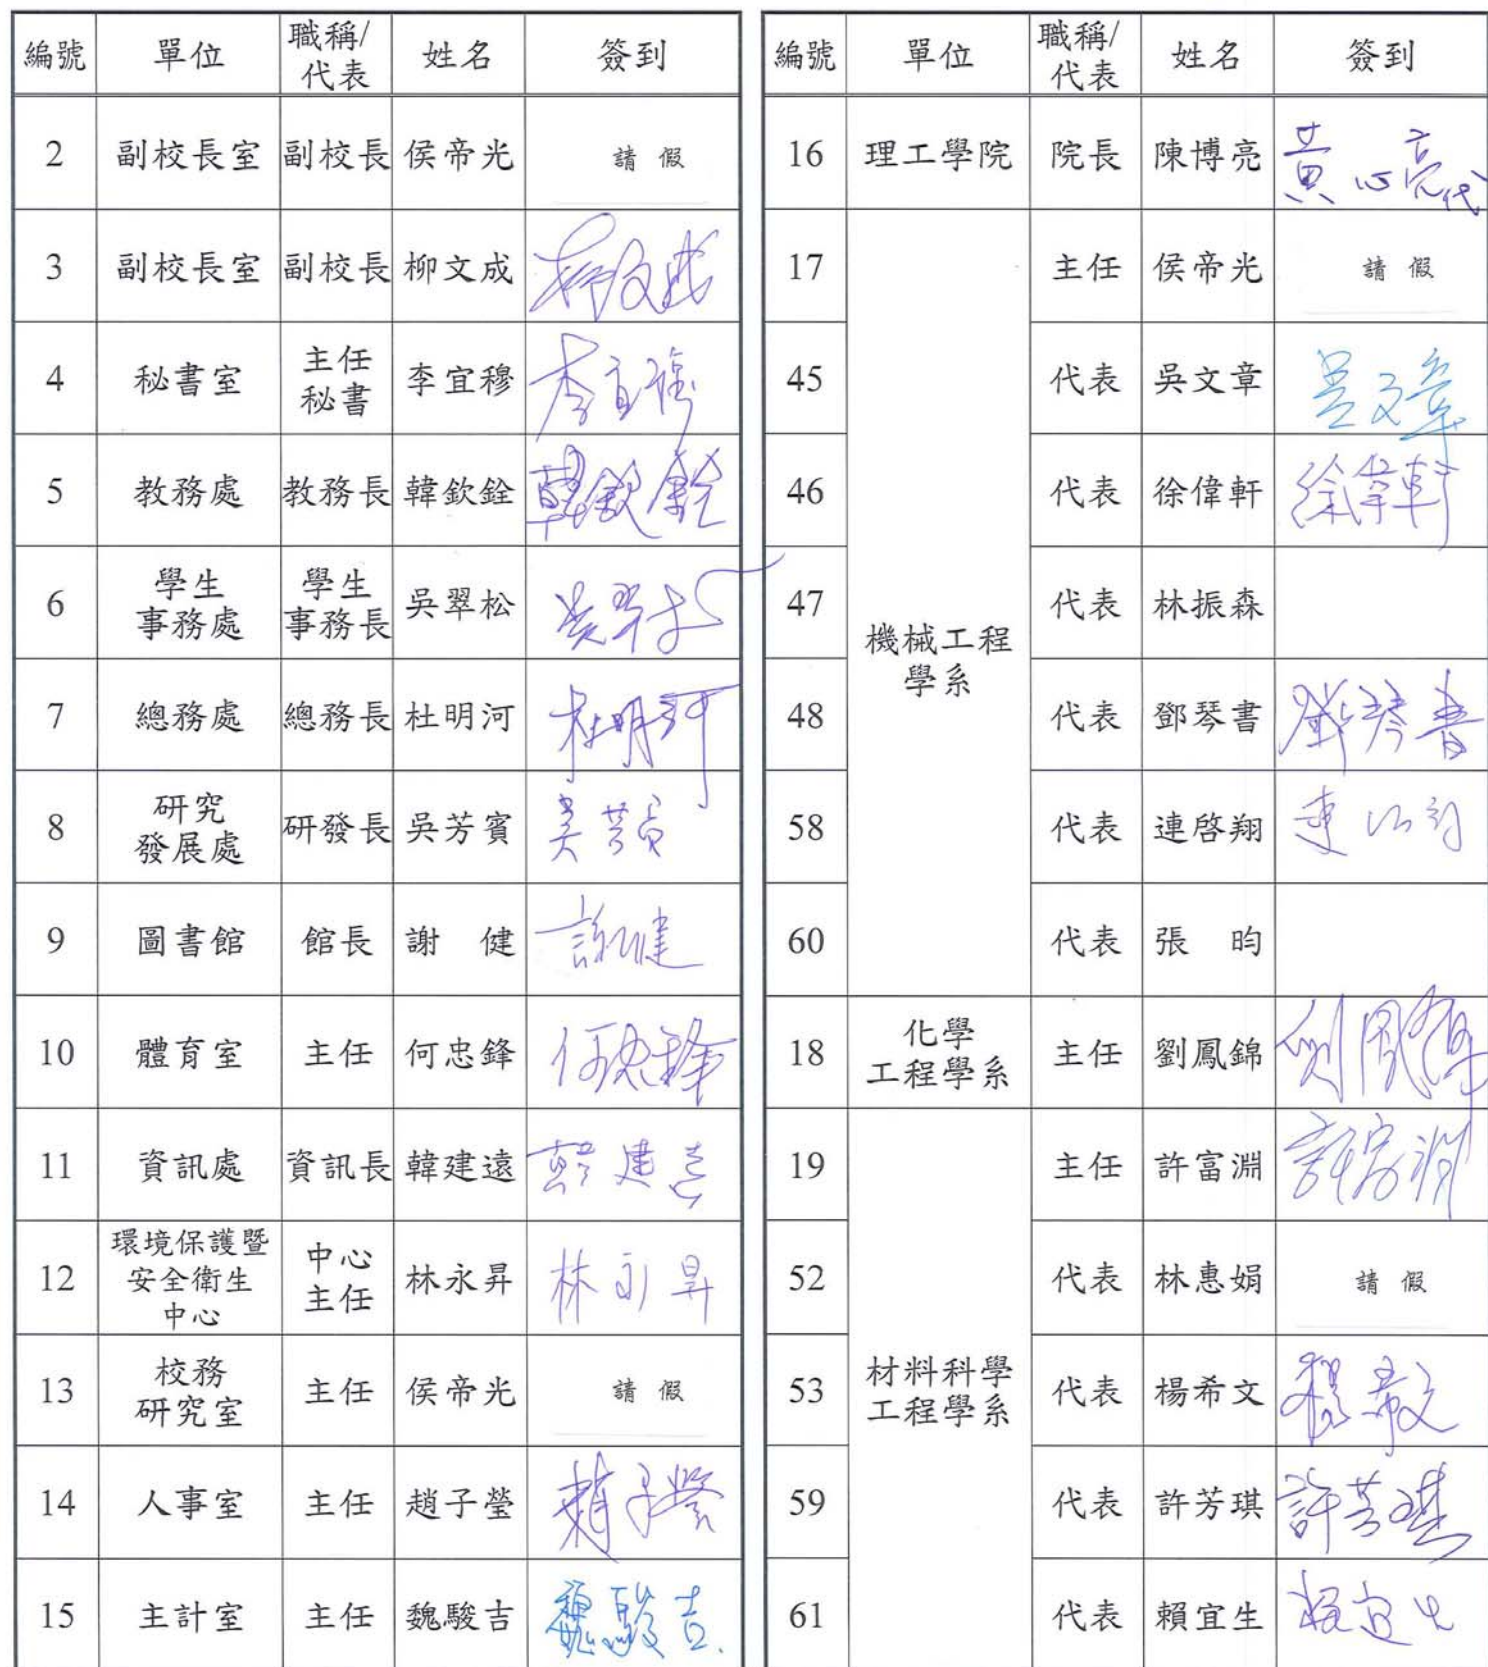 編號 單位 職稱/代表 姓名 簽到
2 副校長室 副校長 侯帝光 請假
3 副校長室 副校長 柳文成 柳文成
4 秘書室 主任秘書 李宜穆 李宜穆
5 教務處 教務長 韓欽銓 韓欽銓
6 學生事務處 學生事務長 吳翠松 吳翠松
7 總務處 總務長 杜明河 杜明河
8 研究發展處 研發長 吳芳賓 吳芳賓
9 圖書館 館長 謝健 謝健
10 體育室 主任 何忠鋒 何忠鋒
11 資訊處 資訊長 韓建遠 韓建遠
12 環境保護暨安全衛生中心 中心主任 林永昇 林永昇
13 校務研究室 主任 侯帝光 請假
14 人事室 主任 趙子瑩 趙子瑩
15 主計室 主任 魏駿吉 魏駿吉
編號 單位 職稱/代表 姓名 簽到
16 理工學院 院長 陳博亮 黃心亮代
機械工程學系
17 主任 侯帝光 請假
45 代表 吳文章 吳文章
46 代表 徐偉軒 徐偉軒
47 代表 林振森
48 代表 鄧琴書 鄧琴書
58 代表 連啓翔
60 代表 張昀
18 化學工程學系 主任 劉鳳錦 劉鳳錦
材料科學工程學系
19 主任 許富淵 許富淵
52 代表 林惠娟 請假
53 代表 楊希文 楊希文
59 代表 許芳琪 許芳琪
61 代表 賴宜生 賴宜生